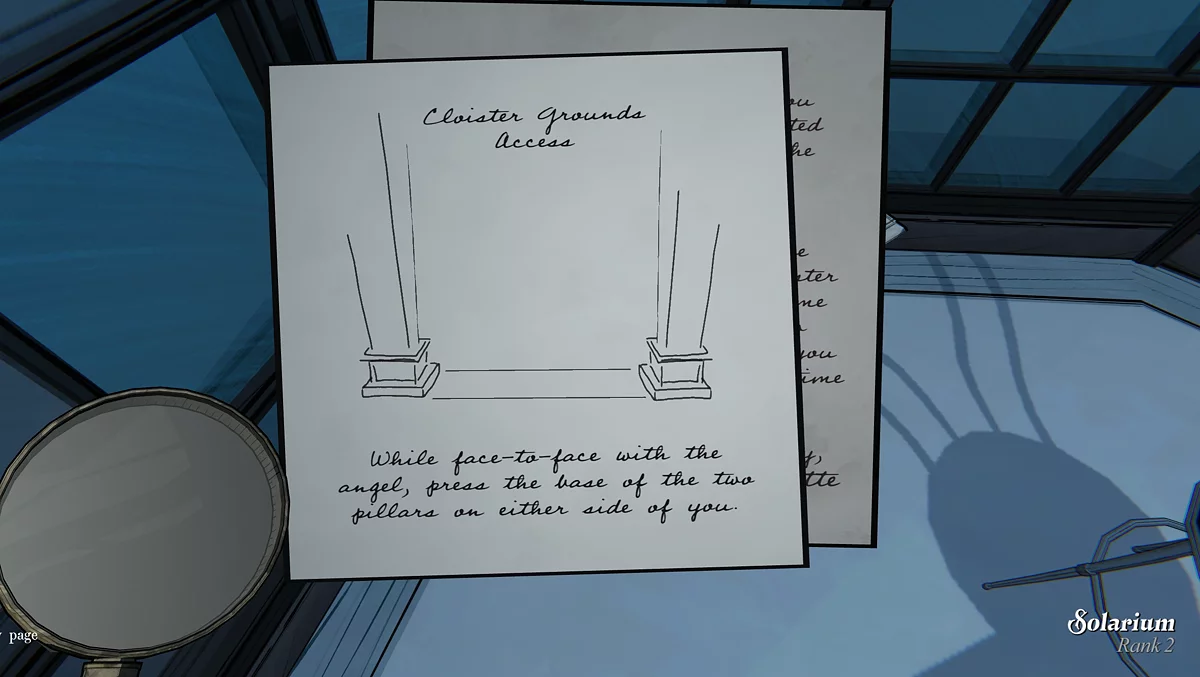 Cloister Grounds
Access
While face-to-face with the
angel, press the base of the two
pillars on either side of you.
you
time
page
Solarium
Rank 2